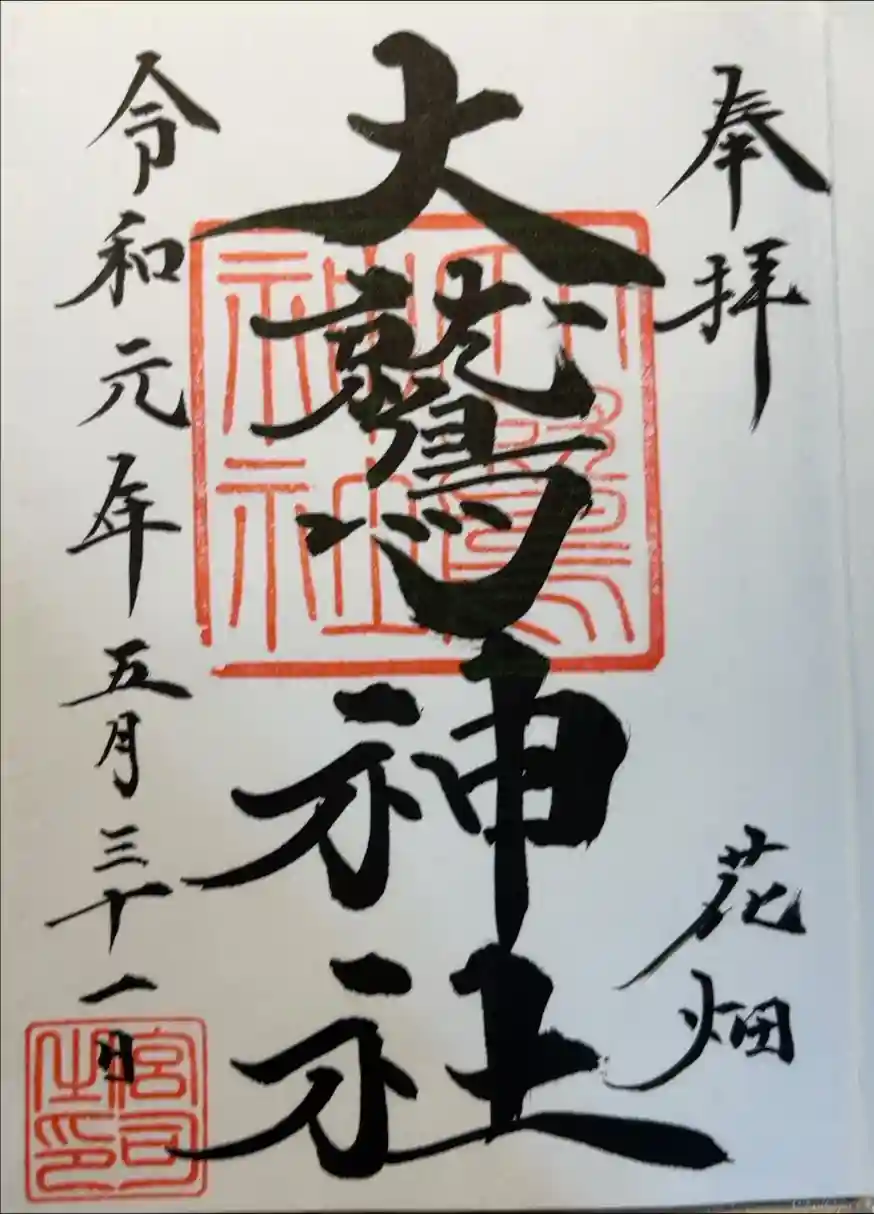 奉拝
花畑
大鷲神社
大鷲
神社
令和元年五月三十一日
宮司
之印